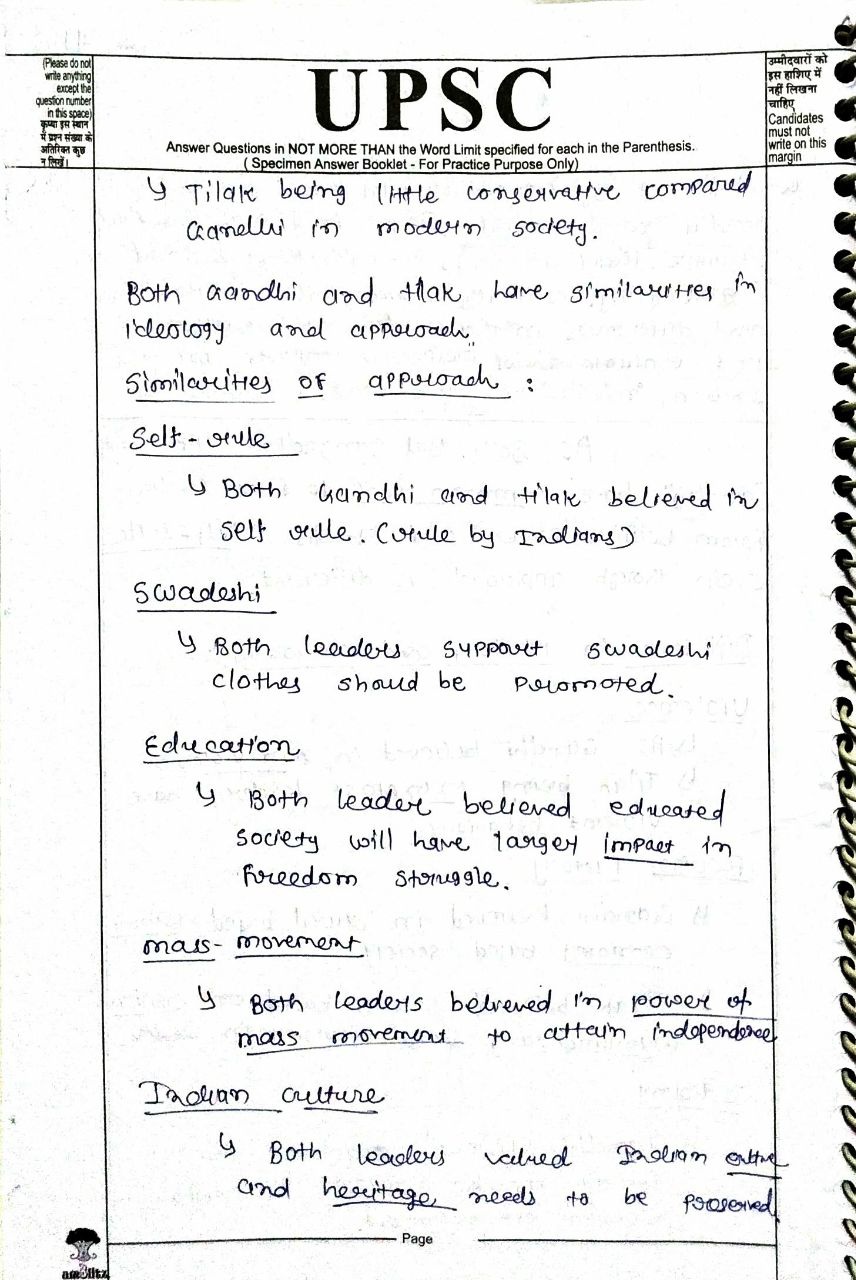 (Please do not
write anything
except the
question number
in this space)
कृपया इस स्थान
में प्रश्न संख्या के
अतिरिक्त कुछ
न लिखें।
UPSC
Answer Questions in NOT MORE THAN the Word Limit specified for each in the Parenthesis.
( Specimen Answer Booklet - For Practice Purpose Only)
उम्मीदवारों को
इस हाशिए में
नहीं लिखना
चाहिए
Candidates
must not
write on this
margin
↳ Tilak being little conservative compared
Gandhi in modern society.
Both Gandhi and tilak have similarities in
ideology and approach.
Similarities of approach :
Self-rule
↳ Both Gandhi and tilak believed in
self rule. (rule by Indians)
Swadeshi
↳ Both leaders support swadeshi
clothes should be promoted.
Education
↳ Both leader believed educated
society will have larger impact in
freedom struggle.
mass-movement
↳ Both leaders believed in power of
mass movement to attain independence
Indian culture
↳ Both leaders valued Indian culture
and heritage needs to be preserved.
Page